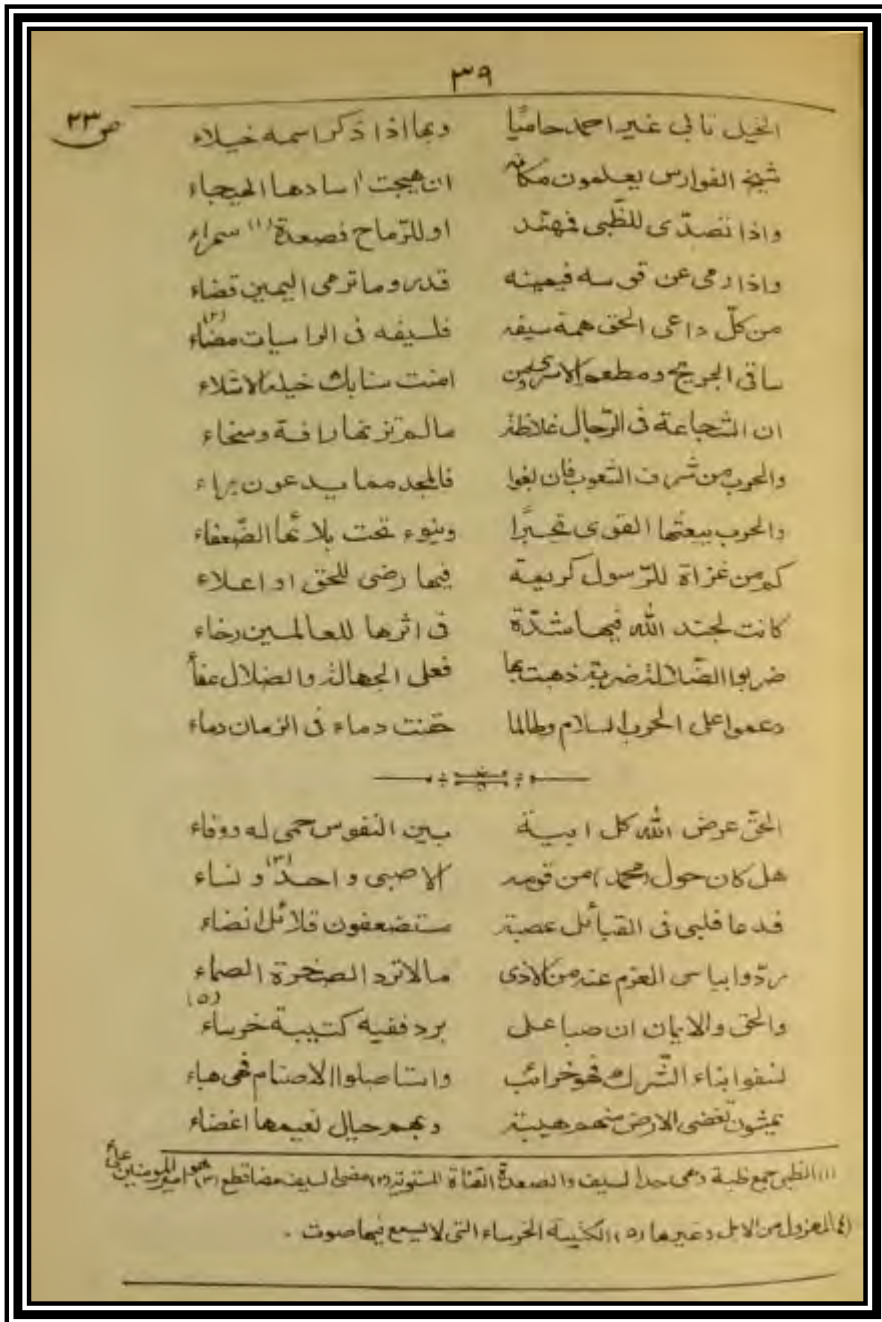 ٣٩
ص ٢٣
الخيل تابى غير احمد حاميًا وبها اذا ذكر اسمه خيلاء
شيخ الفوارس يعلمون مكانه ان هيجت اسادها الهيجاء
واذا تصدّى للظّبى فمهنّد او للرّماح فصعدة (١) سمراء
واذا رمى عن قوسه فيمينه قدر وما ترمى اليمين قضاء
من كلّ داعى الحق همة سيفه فلسيفه فى الراسيات مضاء (٢)
ساقى الجريح ومطعم الاسرى ومن امنت سنابك خيله الاشلاء
ان الشجاعة فى الرّجال غلاظة مالم تزنها رافة وسخاء
والحرب من شرف الشعوب فان بغوا فالمجد مما يدعون براء
والحرب يبعثها القوى تجبّرًا وينوء تحت بلائها الضّعفاء
كم من غزاة للرّسول كريمة فيها رضى للحق او اعلاء
كانت لجند الله فيها شدّة فى اثرها للعالمين رخاء
ضربوا الضّلالة ضربة ذهبت بها فعلى الجهالة والضلال عفاء
دعموا على الحرب السلام وطالما حقنت دماء فى الزمان دماء
الحق عرض الله كل ابية بين النفوس حمى له ووقاء
هل كان حول (محمد) من قومه الا صبى واحد (٣) ونساء
فدعا فلبى فى القبائل عصبة مستضعفون قلائل انضاء
ردّوا ببأس العزم عنه من الاذى مالا ترد الصخرة الصماء
والحق والايمان ان صبا على برد ففيه كتيبة خرساء (٥)
نسفوا بناء الشّرك فهو خرائب واستاصلوا الاصنام فهى هباء
يمشون تغضى الارض منهم هيبة وبهم حيال نعيمها اغضاء
(١) الظبى جمع ظبة وهى حد السيف والصعدة القناة المستوية (٢) مضى السيف مضا قطع (٣) هو امير المومنين على
(٤) المهزول من الابل وغيرها (٥) الكتيبة الخرساء التى لا يسمع فيها صوت .